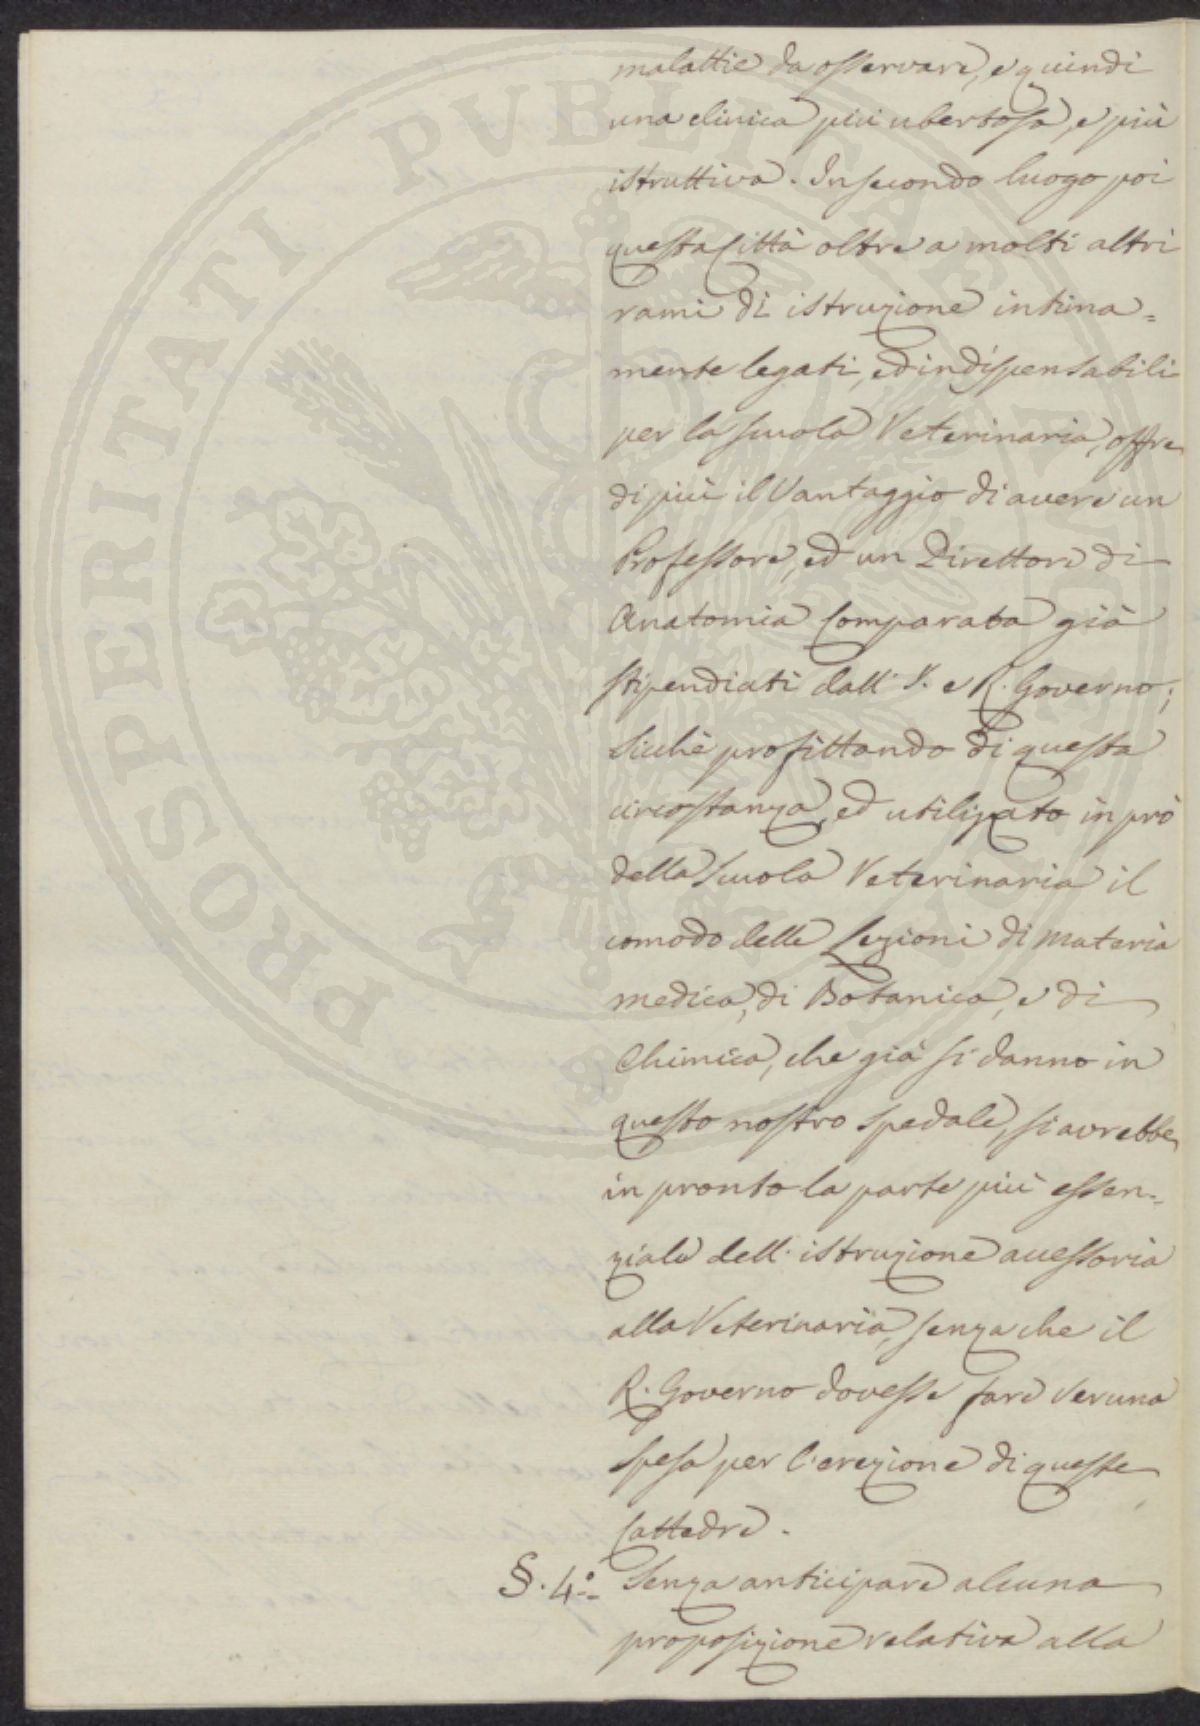 PROSPERITATI PVBLICAE AVGENDAE
malattie da osservare, e quindi
una clinica più ubertosa, e più
istruttiva. In secondo luogo poi
questa Città oltre a molti altri
rami di istruzione intima=
mente legati, ed indispensabili
per la scuola Veterinaria, offre
di più il Vantaggio di avere un
Professore, ed un Direttore di
Anatomia Comparata già
stipendiati dall' I. e R. Governo;
Sicchè profittando di questa
circostanza, ed utilizato in prò
della Scuola Veterinaria il
comodo delle Lezioni di Materia
medica, di Botanica, e di
Chimica, che già si danno in
questo nostro Spedale, si avrebbe
in pronto la parte più essen=
ziale dell' istruzione accessoria
alla Veterinaria, senza che il
R. Governo dovesse fare veruna
spesa per l'erezione di queste
Cattedre.
§. 4.° Senza anticipare alcuna
proposizione relativa alla